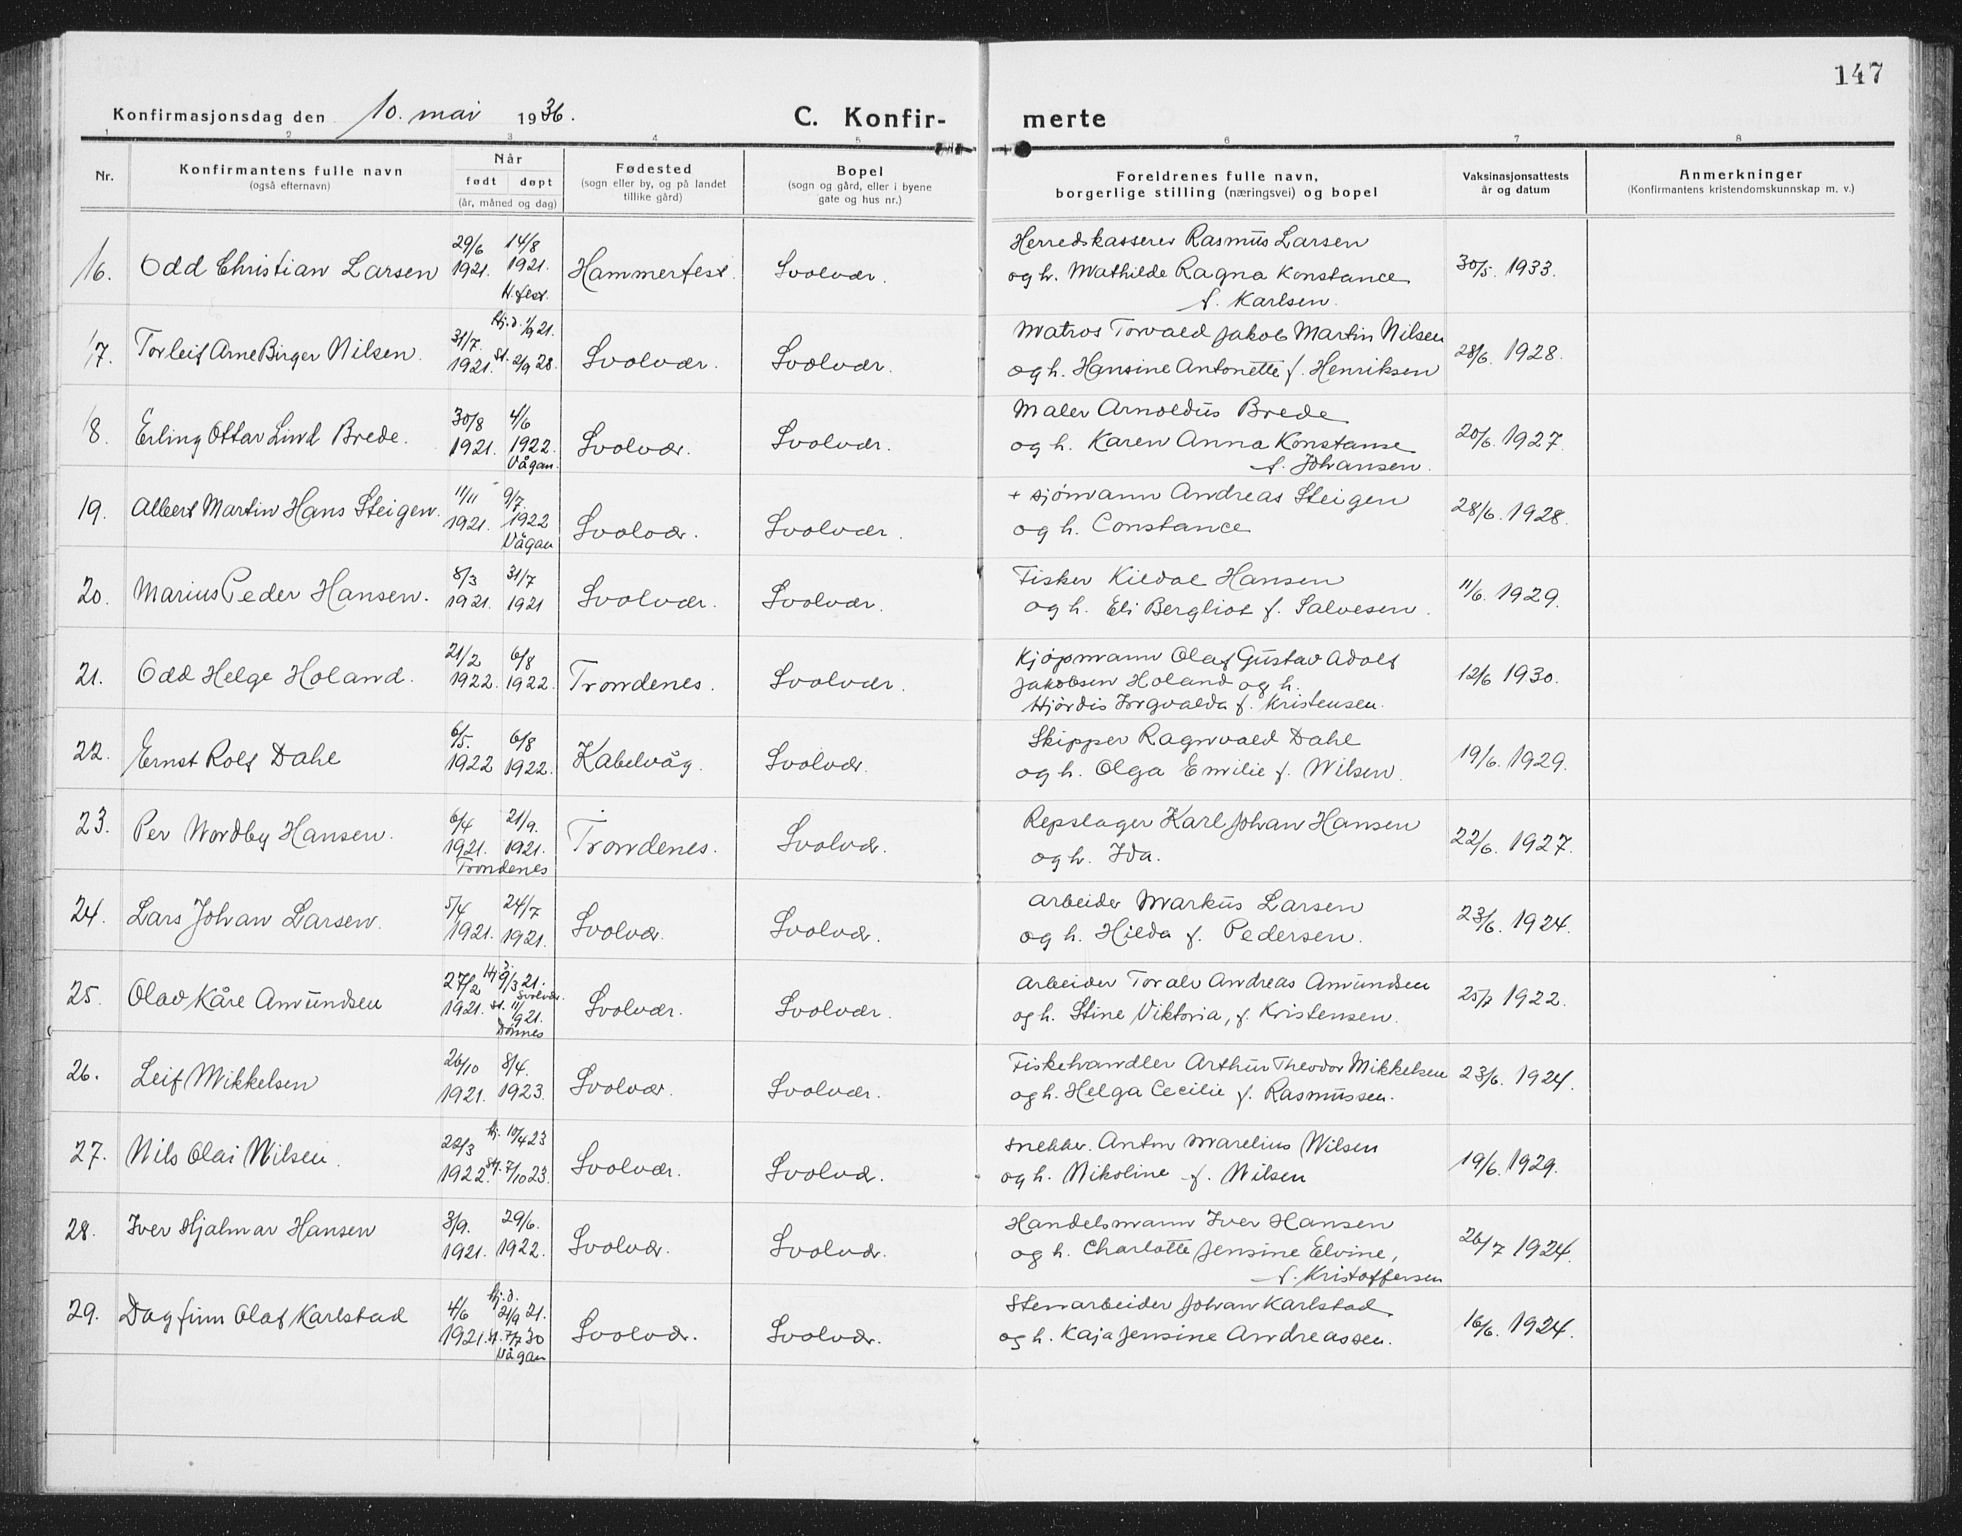 147
Konfirmasjonsdag den 10. mai 1936. C. Konfir- merte
1 2 3 4 5 6 7 8
Nr. Konfirmantens fulle navn (også efternavn) Når født døpt (år, måned og dag) Fødested (sogn eller by, og på landet tillike gård) Bopel (sogn og gård, eller i byene gate og hus nr.) Foreldrenes fulle navn, borgerlige stilling (næringsvei) og bopel Vaksinasjonsattests år og datum Anmerkninger (Konfirmantens kristendomskunnskap m. v.)
16. Odd Christian Larsen 29/6 1921. 14/8 1921. H.fest. Hammerfest. Svolvær. Herredskasserer Rasmus Larsen
og h. Mathilde Ragna Konstance
f. Karlsen. 30/5. 1933.
17. Torleif Arne Birger Nilsen. 31/7. 1921. Hj.d. 1/9 21. st. 2/9 28. Svolvær. Svolvær. Matros Torvald Jakob Martin Nilsen
og h. Hansine Antonette f. Henriksen 28/6. 1928.
18. Erling Ottar Lind Brede. 30/8 1921. 4/6 1922. Vågan. Svolvær. Svolvær. Maler Arnoldus Brede
og h. Karen Anna Konstanse
f. Johansen. 20/6. 1927.
19. Albert Martin Hans Steigen. 11/11 1921. 9/7. 1922 Vågan Svolvær. Svolvær. + sjømann Andreas Steigen
og h. Constance 28/6. 1928.
20. Marius Peder Hansen. 8/3 1921. 31/7 1921 Svolvær. Svolvær. Fisker Kildal Hansen
og h. Eli Bergliot f. Salvesen. 11/6. 1929.
21. Odd Helge Holand. 21/2 1922. 6/8 1922. Trondenes. Svolvær. Kjøpmann Olaf Gustav Adolf
Jakobsen Holand og h.
Hjördis Torgvalda f. Kristensen. 12/6 1930.
22. Ernst Rolf Dahl 6/5. 1922 6/8 1922. Kabelvåg. Svolvær. Skipper Ragnvald Dahl
og h. Olga Emilie f. Nilsen. 19/6. 1929.
23. Per Nordby Hansen. 6/4 1921. 21/9. 1921. Trondenes Trondenes. Svolvær. Repslager Karl Johan Hansen
og h. Ida. 22/6. 1927.
24. Lars Johan Larsen. 5/4 1921. 24/7 1921. Svolvær. Svolvær. Arbeider Markus Larsen
og h. Hilda f. Pedersen. 23/6. 1924.
25. Olav Kåre Amundsen 27/2 1921. Hj.d. 9/3 21. Svolvær. st. 11/9 21. Dønnes Svolvær. Svolvær. Arbeider Toralv Andreas Amundsen
og h. Stine Viktoria, f. Kristensen. 25/7 1922.
26. Leif Mikkelsen 26/10 1921. 8/4. 1923. Svolvær. Svolvær. Fiskehandler Arthur Theodor Mikkelsen
og h. Helga Cecilie f. Rasmussen. 23/6. 1924.
27. Nils Olai Nilsen. 22/3 1922. Hj. 10/4 23 st. 7/10 23. Svolvær. Svolvær. Snekker. Anton Marelius Nilsen
og h. Nikoline f. Nilsen 19/6. 1929.
28. Iver Hjalmar Hansen 3/9. 1921. 29/6. 1922. Svolvær. Svolvær. Handelsmann Iver Hansen
og h. Charlotte Jensine Elvine,
f. Kristoffersen 26/7 1924.
29. Dagfinn Olaf Karlstad 4/6 1921. Hj.d. 21/9 21. st. 7/7 30 Vågan Svolvær. Svolvær. Stenarbeider Johan Karlstad
og h. Kaja Jensine Andreassen. 16/6. 1924.